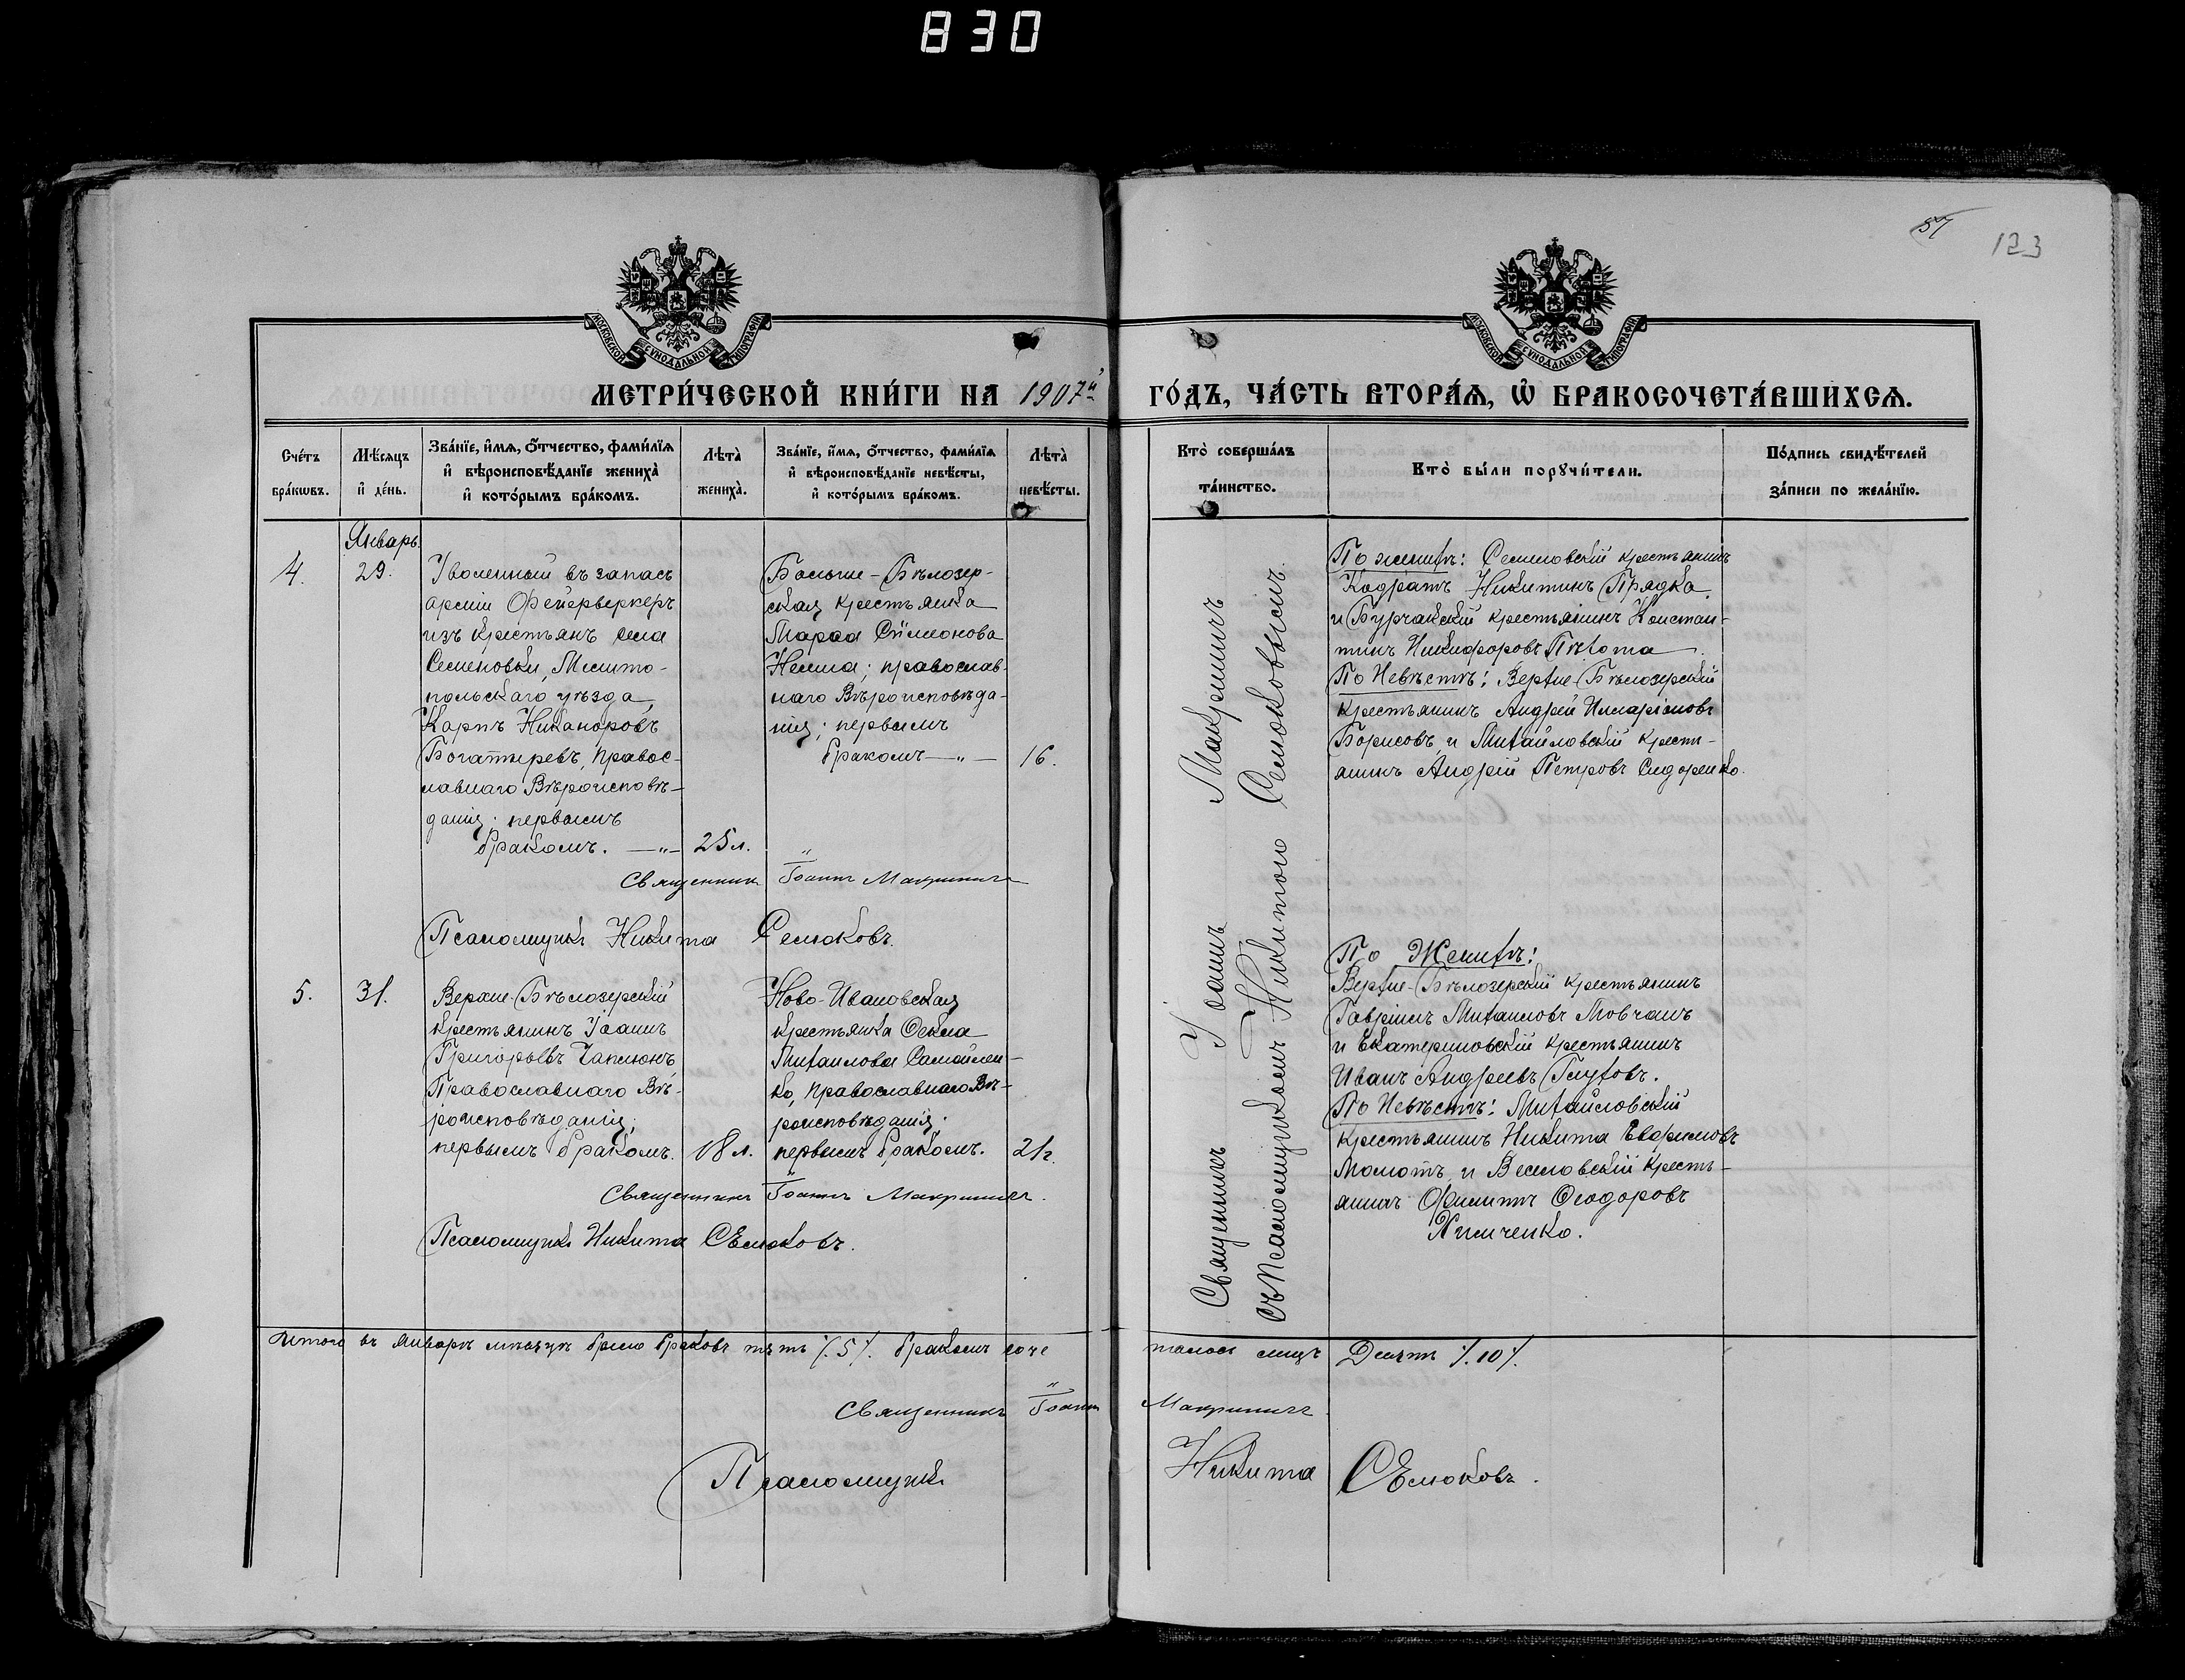 830
57
123
МОСКОВСКОЙ СУНОДАЛЬНОЙ ТИПОГРАФІИ
МОСКОВСКОЙ СУНОДАЛЬНОЙ ТИПОГРАФІИ
МЕТРИ́ЧЕСКОЙ КНИ́ГИ НА 1907й ГО́ДЪ, ЧА́СТЬ ВТОРА́Я, Ѡ҆ БРАКОСОЧЕТА́ВШИХСЯ.
Сче́тъ бра́кѡвъ.
Мѣ́сяцъ и҆ де́нь.
Зва́нїе, и҆́мя, ѻ҆́тчество, фами́лїя
и҆ вѣроисповѣ́данїе жениха̀
и҆ кото́рымъ бра́комъ.
Лѣта̀ жениха̀.
Зва́нїе, и҆́мя, ѻ҆́тчество, фами́лїя
и҆ вѣроисповѣ́данїе невѣ́сты,
и҆ кото́рымъ бра́комъ.
Лѣта̀ невѣ́сты.
Кто̀ соверша́лъ та́инство.
Кто̀ бы́ли порꙋчи́тели.
По́дпись свидѣ́телей за́писи по жела́нїю.
Январь.
4.
29.
Уволенный въ запасъ
арміи Фейерверкеръ
изъ крестьянъ села
Семеновки, Мелито-
польскаго уѣзда,
Карпъ Никаноровъ
Богатыревъ, правос-
лавнаго Вѣроисповѣ-
данія; первымъ
бракомъ. —„—
25 л.
Больше-Бѣлозер-
ская крестьянка
Марѳа Сѵмеонова
Нелша; православ-
наго Вѣроисповѣда-
нія; первымъ
бракомъ —„—
16.
Священникъ Іоаннъ Макриничъ
Псаломщикъ Никита Семоковъ.
По женихѣ: Семеновскій крестьянинъ
Кодратъ Никитинъ Прядка,
и Бурчакскій крестьянинъ Констан-
тинъ Никифоровъ Пѣхота.
По Невѣстѣ: Верхне-Бѣлозерскій
крестьянинъ Андрей Иларіоновъ
Борисовъ, и Михайловскій кресть-
янинъ Андрій Петровъ Сидоренко.
5.
31.
Верхне-Бѣлозерскій
крестьянинъ Іоаннъ
Григорьевъ Чаплюнъ,
Православнаго Вѣ-
роисповѣданія;
первымъ бракомъ.
18 л.
Ново-Ивановская
крестьянка Ѳекла
Михаилова Самойлен-
ко, Православнаго Вѣ-
роисповѣданія;
первымъ бракомъ.
21 г.
Священникъ Іоаннъ Макриничъ.
Псаломщикъ Никита Семоковъ.
По Женихѣ:
Верхне-Бѣлозерскій крестьянинъ
Гавріилъ Михаиловъ Мовчанъ
и Екатериновскій крестьянинъ
Иванъ Андреевъ Глуховъ.
По Невѣстѣ: Михайловскій
крестьянинъ Никита Евфимовъ
Молотъ, и Веселовскій кресть-
янинъ Филиппъ Ѳеодоровъ
Химченко.
Священникъ Іоаннъ Макриничъ
съ Псаломщикомъ Никитою Семоковымъ.
Итого въ Январѣ мѣсяцѣ было браковъ пять ٪5٪. бракомъ соче талось лицъ Десять ٪10٪.
Священникъ Іоаннъ Макриничъ
Псаломщикъ Никита Семоковъ.